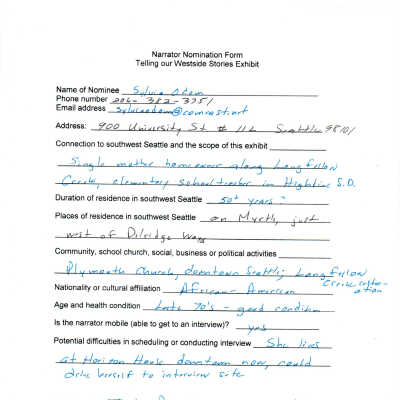 Narrator Nomination Form
Telling our Westside Stories Exhibit
Name of Nominee Sylvia Odom
Phone number 206-382-3751
Email address sylviaodom@comcast.net
Address: 900 University St # 112 Seattle 98101
Connection to southwest Seattle and the scope of this exhibit
Single mother homeowner along Longfellow
Creek, elementary school teacher in Highline S.D.
Duration of residence in southwest Seattle 50+ years
Places of residence in southwest Seattle on Myrtle, just
west of Delridge Way
Community, school church, social, business or political activities
Plymouth Church, downtown Seattle; Longfellow
Creek
Nationality or cultural affiliation African-American
Age and health condition Late 70's - good condition
Is the narrator mobile (able to get to an interview)? yes
Potential difficulties in scheduling or conducting interview She lives
at Horizon House downtown now, could
drive herself to interview site